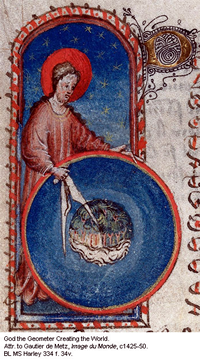 God the Geometer Creating the World.
Attr. to Gautier de Metz, Image du Monde, c1425-50.
BL MS Harley 334 f. 34v.